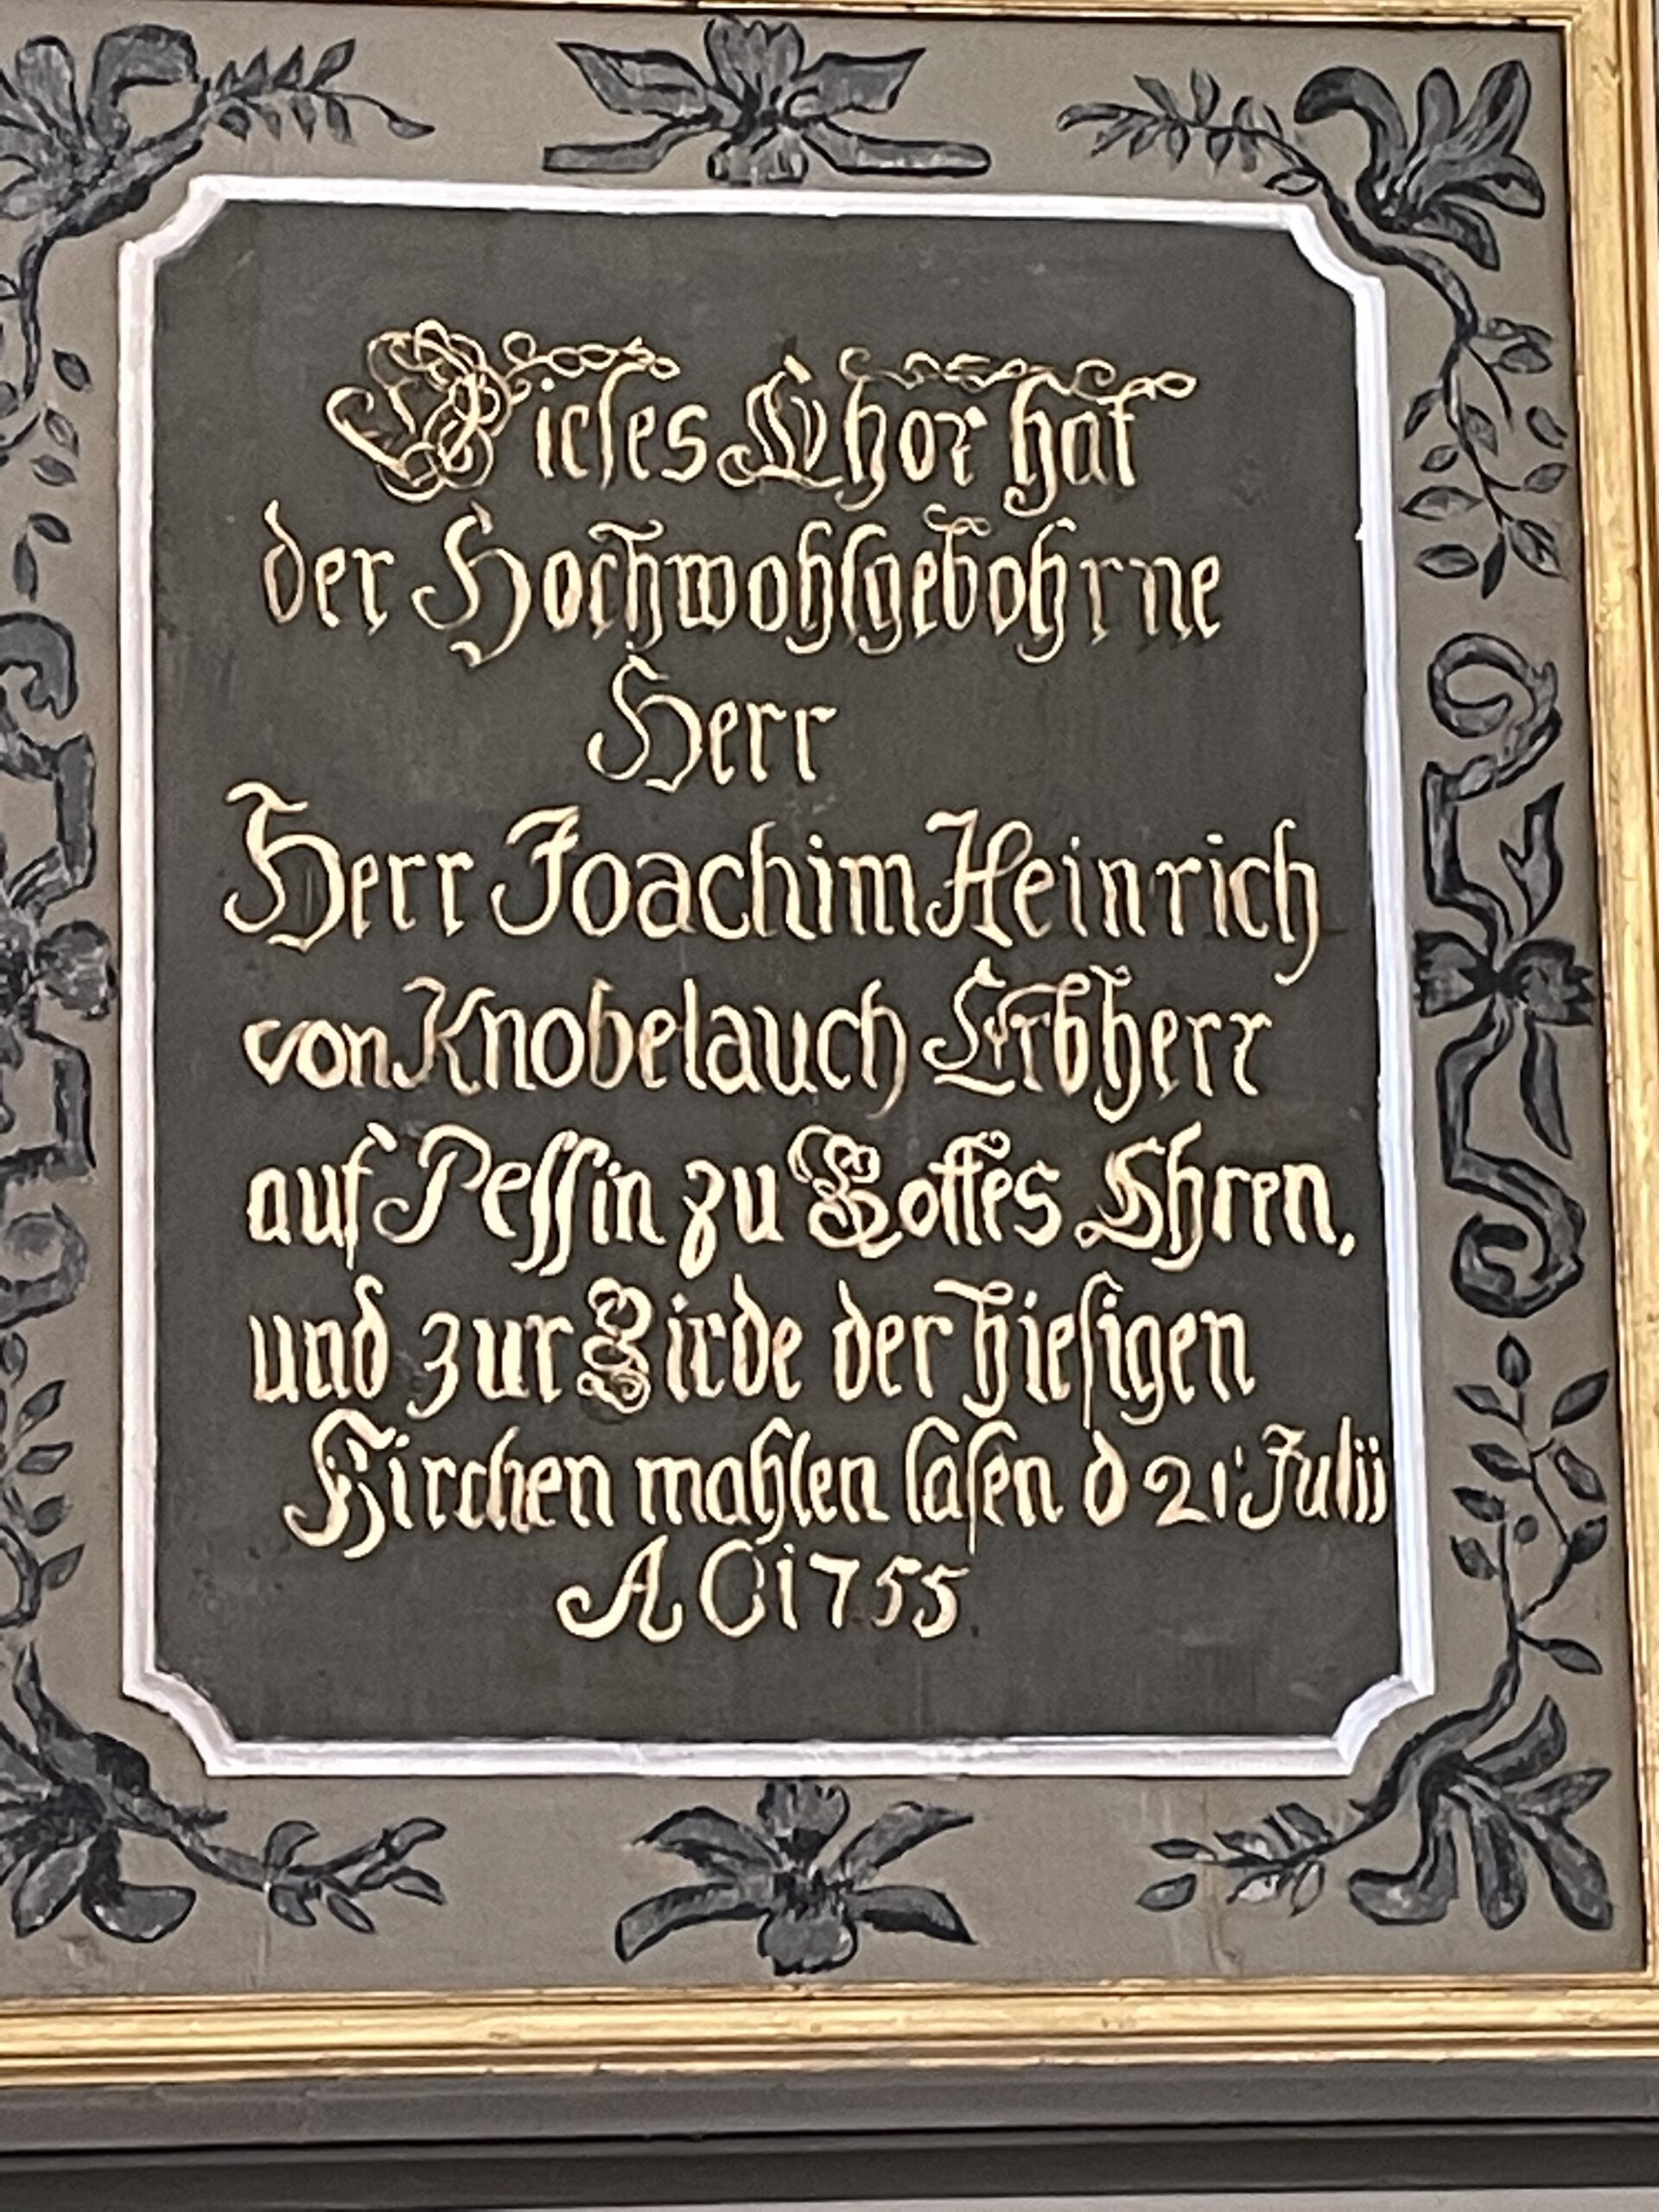 Dieses Chor hat
der Hochwohlgebohrne
Herr
Herr Joachim Heinrich
von Knobelauch Erbherr
auf Pessin zu Gottes Ehren,
und zur Zirde der hiesigen
Kirchen mahlen lasen d 21 Julii
A O 1755